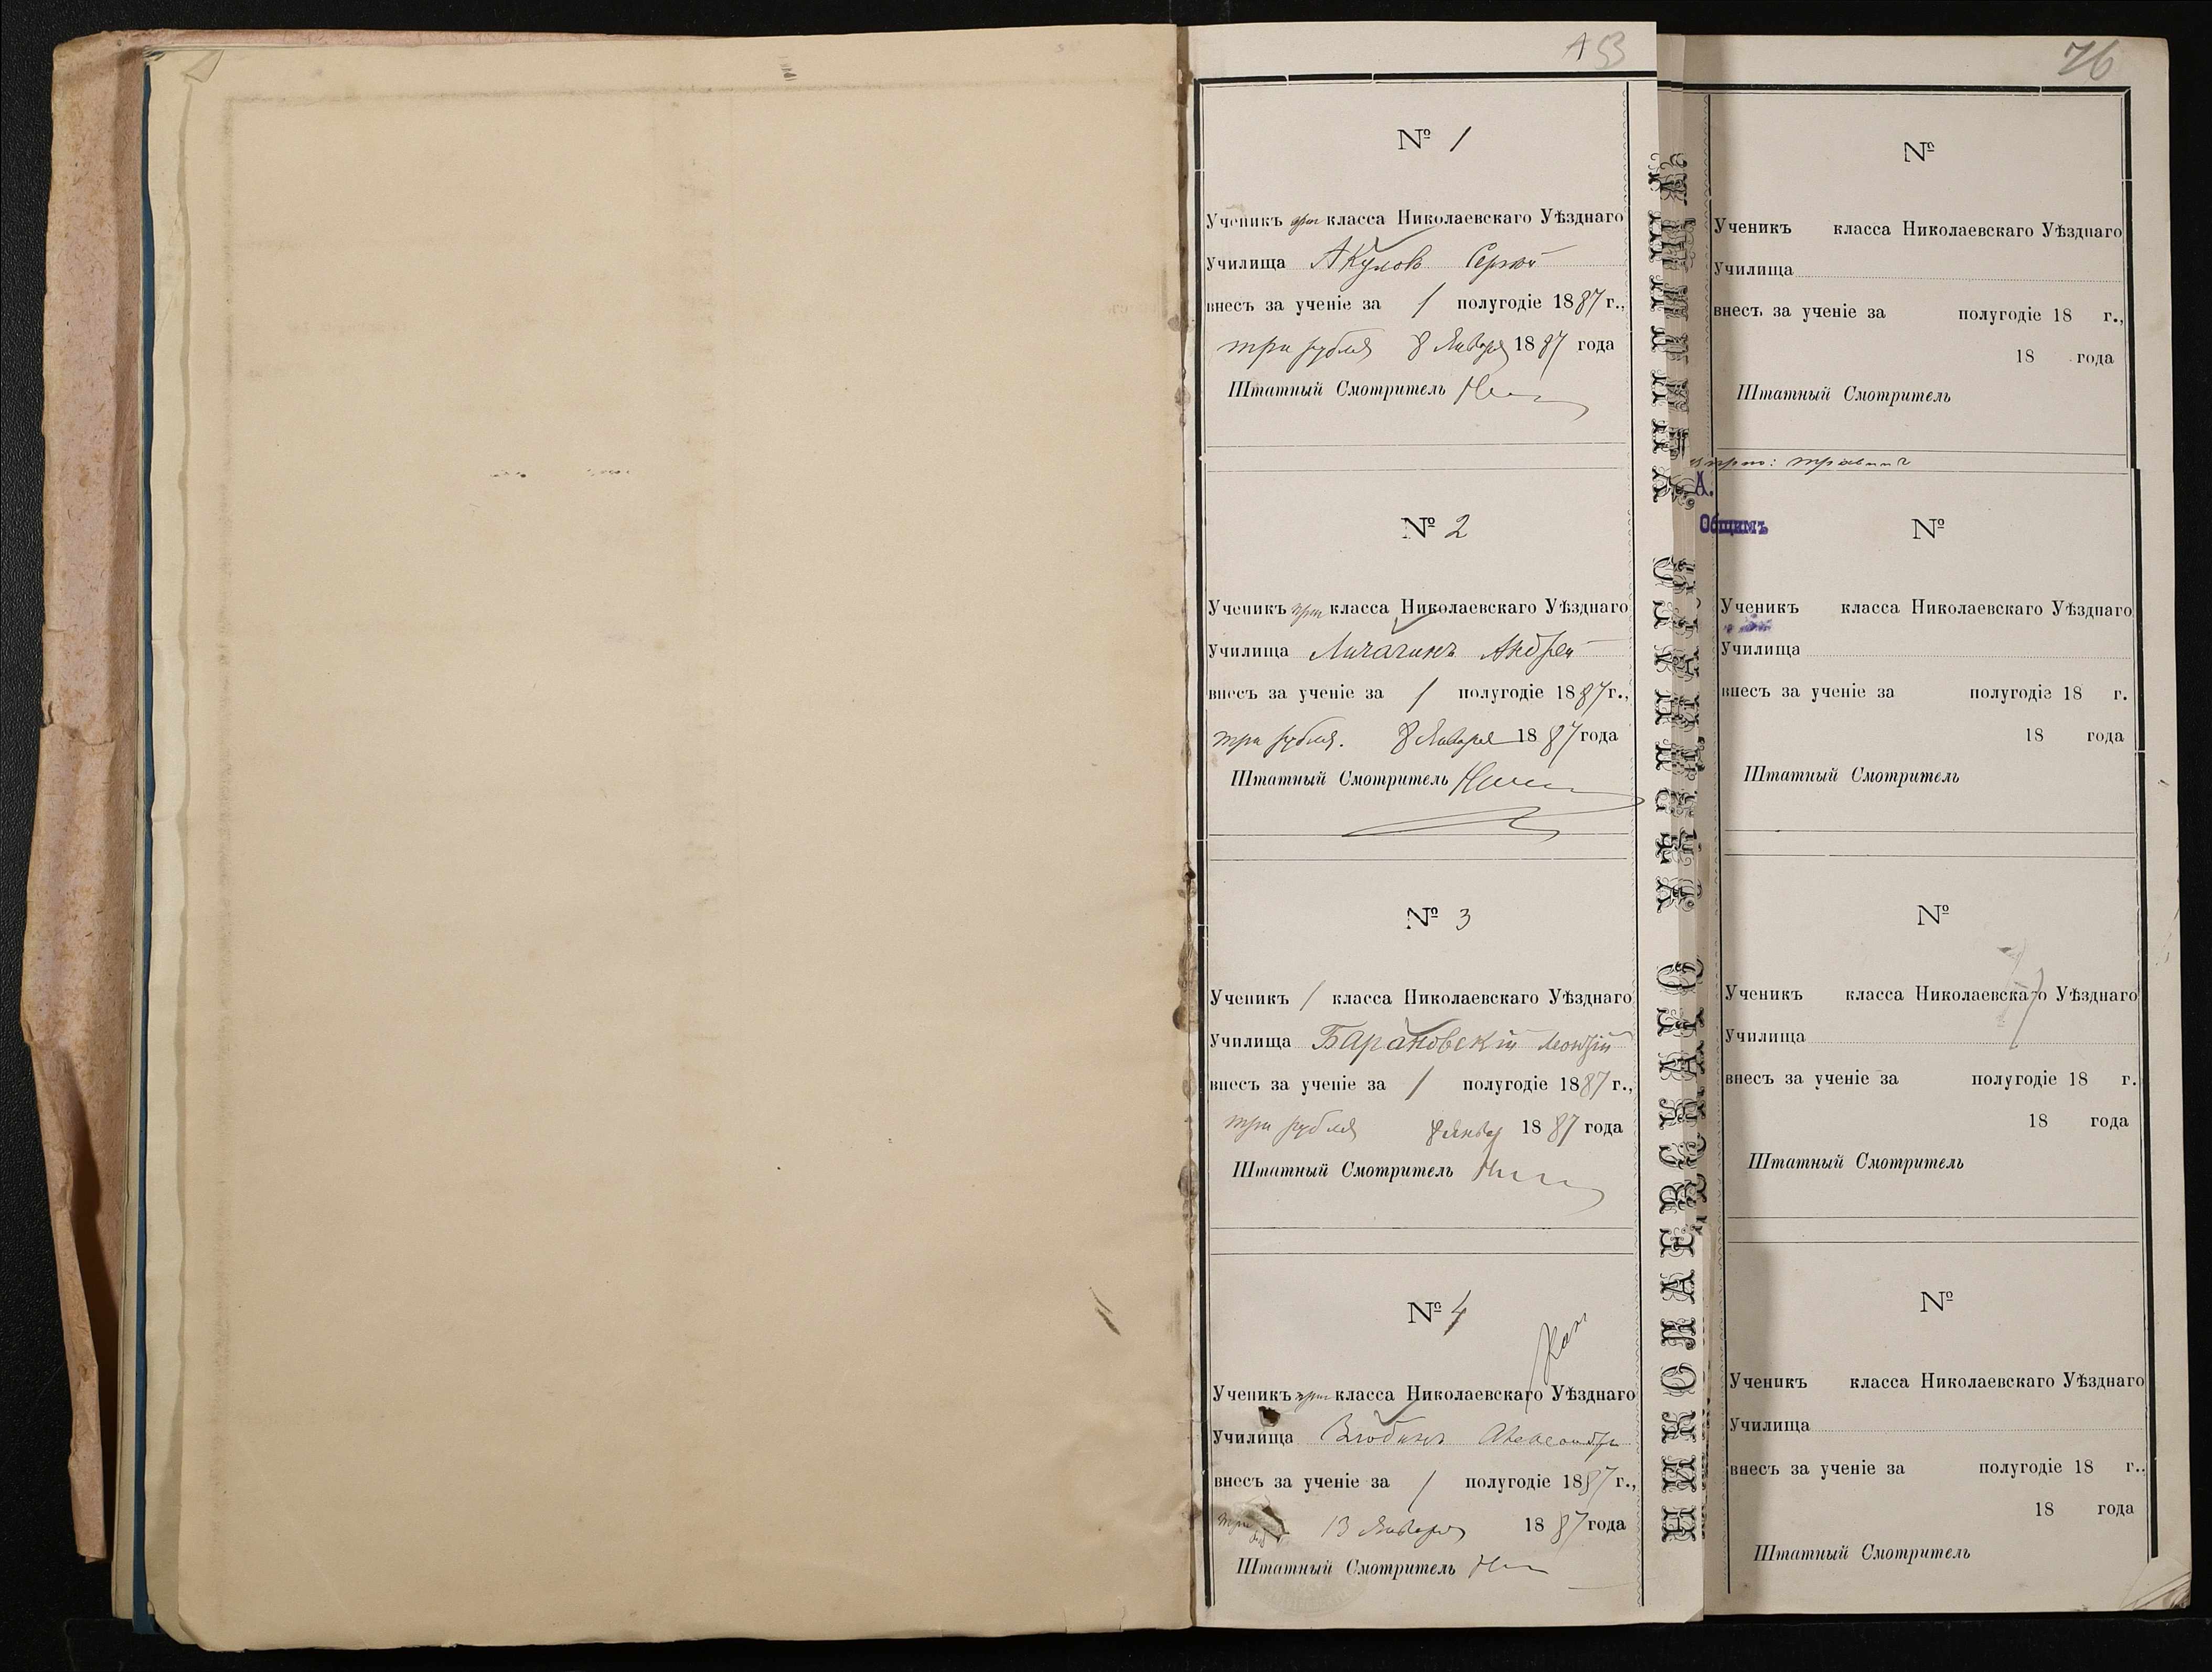 53
№ 1
Ученикъ приг класса Николаевскаго Уѣзднаго
Училища Акулов Сергѣй
внесъ за ученіе за 1 полугодіе 1887 г.,
три рубля 8 Января 1887 года
Штатный Смотритель
№ 2
Ученикъ приг класса Николаевскаго Уѣзднаго
Училища Личагинъ Андрей
внесъ за ученіе за 1 полугодіе 1887 г.,
три рубля. 8 Января 1887 года
Штатный Смотритель
№ 3
Ученикъ 1 класса Николаевскаго Уѣзднаго
Училища Барановскій
внесъ за ученіе за 1 полугодіе 1887 г.,
три рубля 8 Январ 1887 года
Штатный Смотритель
№ 4
Ученикъ приг класса Николаевскаго Уѣзднаго
Училища Злобинъ Александръ
внесъ за ученіе за 1 полугодіе 1887 г.,
три 13 Января 1887 года
Штатный Смотритель
НИКОЛАЕВСКАГО УѢЗДНАГО УЧИЛИЩА
76
№
Ученикъ класса Николаевскаго Уѣзднаго
Училища
внесъ за ученіе за полугодіе 18 г.,
18 года
Штатный Смотритель
А.
Общимъ
№
Ученикъ класса Николаевскаго Уѣзднаго
Училища
внесъ за ученіе за полугодіе 18 г.
18 года
Штатный Смотритель
№
Ученикъ класса Николаевскаго Уѣзднаго
Училища
внесъ за ученіе за полугодіе 18 г.
18 года
Штатный Смотритель
№
Ученикъ класса Николаевскаго Уѣзднаго
Училища
внесъ за ученіе за полугодіе 18 г.,
18 года
Штатный Смотритель